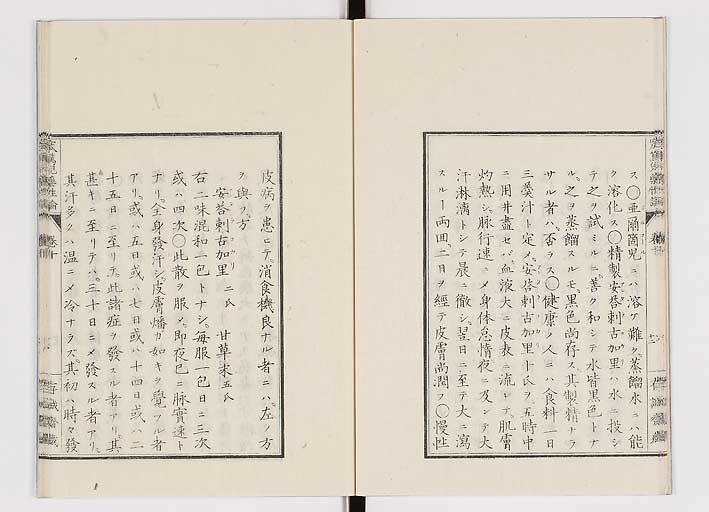 ス○亜爾箇児ニハ溶ケ難ク蒸餾水ニハ能
ク溶化ス○精製安荅剌古加里ハ水ニ投シ
テ之ヲ試ミルニ善ク和シテ水皆黒色トナ
ル之ヲ蒸餾スルモ黒色尚存ス其製精ナラ
サル者ハ否ラス○健康ノ人ニハ食料一日
三羹汁ト定メ安荅剌古加里十氏ヲ五時中
ニ用井盡セハ血液大ニ皮表ニ流レテ肌膚
灼熱シ脉行速ニメ身体怠惰夜ニ及ンテ大
汗淋漓トシテ晨ニ徹シ翌日ニ至テ大ニ瀉
スルー両囬二日ヲ經テ皮膚尚潤フ○慢性
皮病ヲ患ヒテ消食機良ナル者ニハ左ノ方
ク與フ方
安荅剌古加里 二氏 甘草末 五氏
右二味混和一包トナシ毎服一包日ニ三次
或ハ四次○此散ヲ服メ即夜已ニ脉實速ト
ナリ全身發汗シ皮膚燔カ如キヲ覺フル者
アリ或ハ五日或ハ七日或ハ十四日或ハ二
十五日ニ至リテ此諸症ヲ發スル者アリ其
甚キニ至リテハ三十日ニメ發スル者アリ
其汗多クハ温ニメ冷ナラス其初ハ時々發